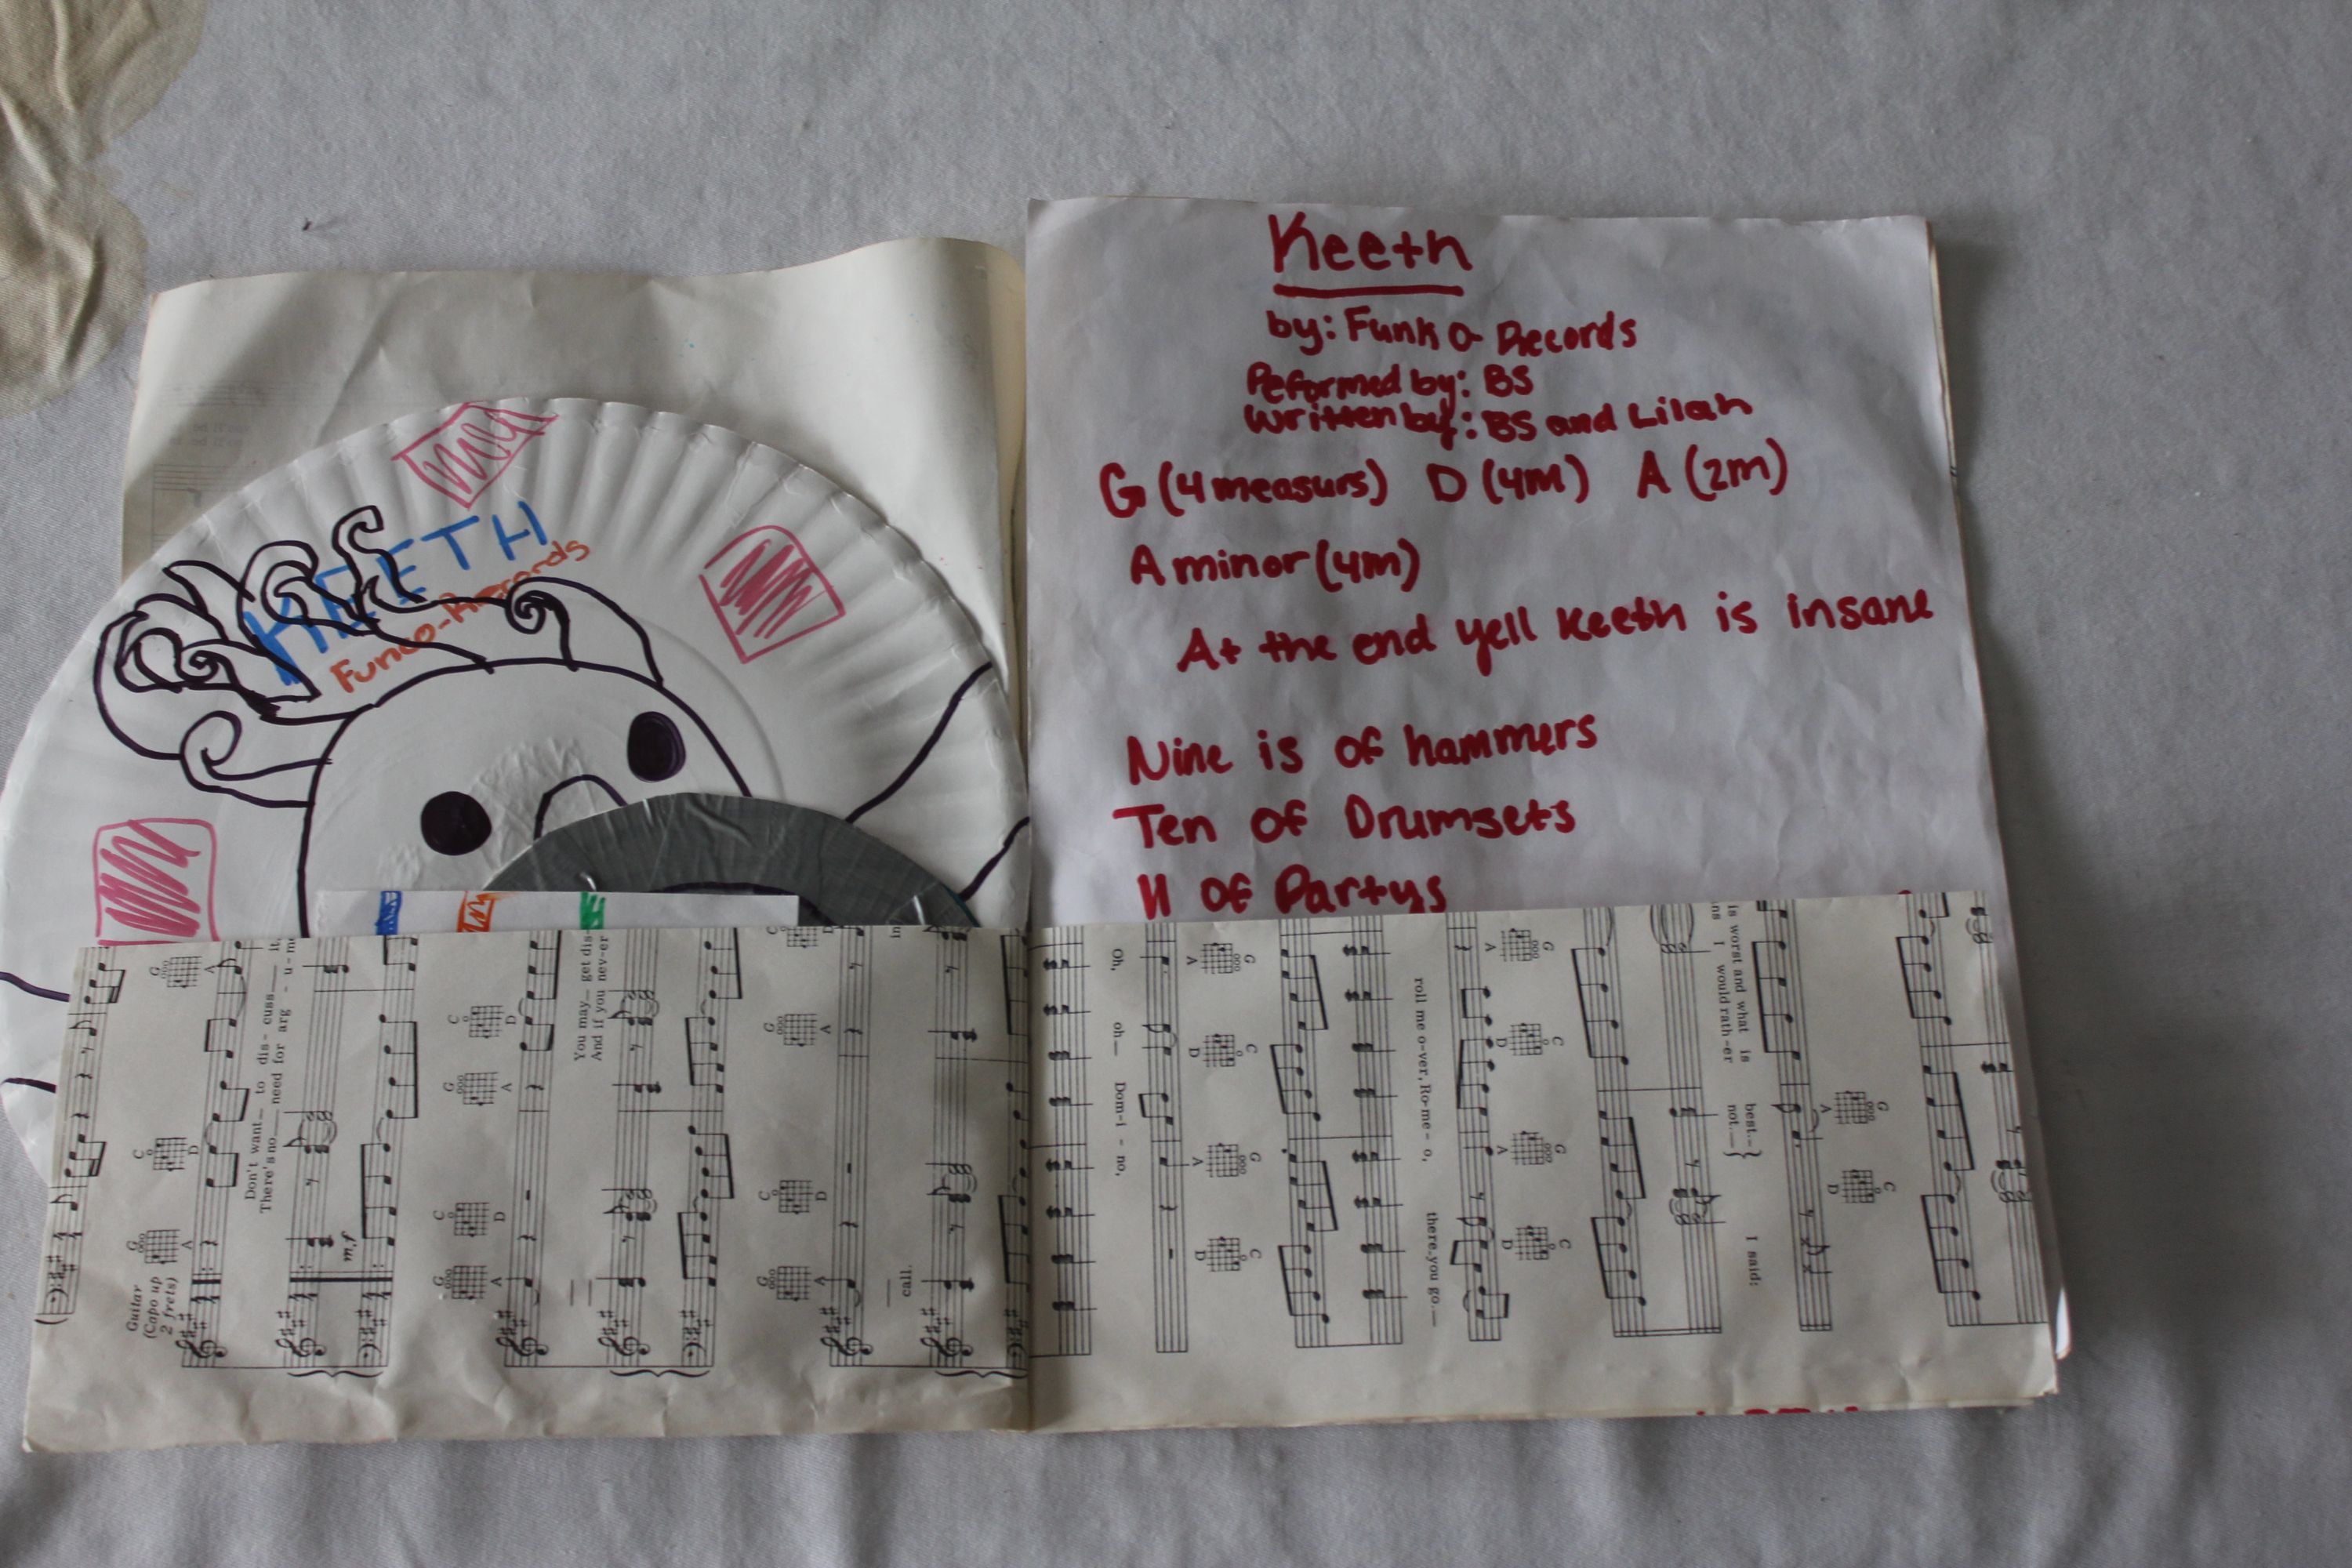 KEETH
Funco-Records
Keeth
by: Funk O- Records
Peformed by: BS
Written by: BS and Lilah
G (4 measurs) D (4M) A (2m)
A minor (4m)
At the end yell Keeth is insane
Nine is of hammers
Ten of Drumsets
11 of Partys
Guitar
(Capo up
2 frets)
Don't want— to dis - cuss— it,
There's no— need for arg - u - me
mf
You may— get dis-
And if you nev-er
call.
in
Oh, oh— Dom - i - no,
roll me o-ver, Ro-me - o, there you go.—
is worst and what is best.—
ns I would rath-er not.—
I said: